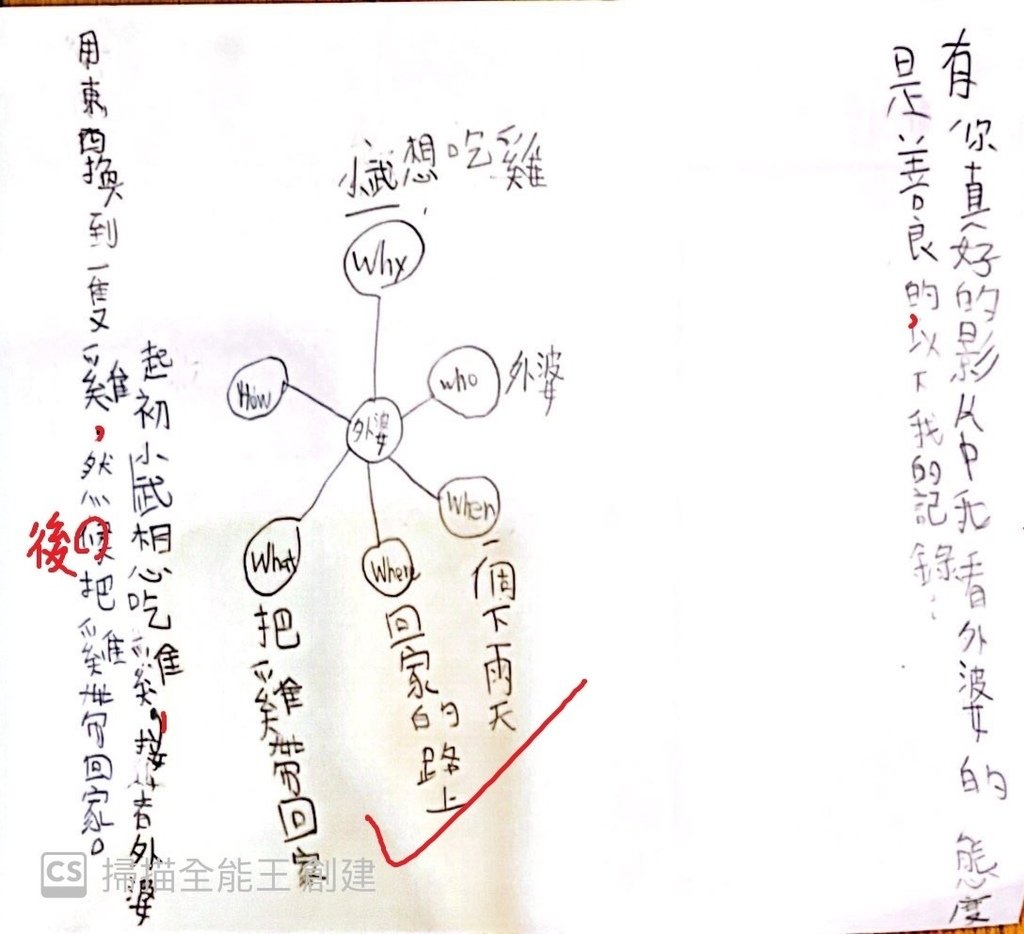 有你真好的影片中我看外婆的態度
是善良的,以下我的記錄:
小武想吃雞
Why
who
外婆
How
外婆
When
一個下雨天
Where
回家的路上
What
把雞帶回家
起初小武想吃雞,接著外婆
用東西換到一隻雞,然候把雞帶回家。
後
CS 掃描全能王 創建